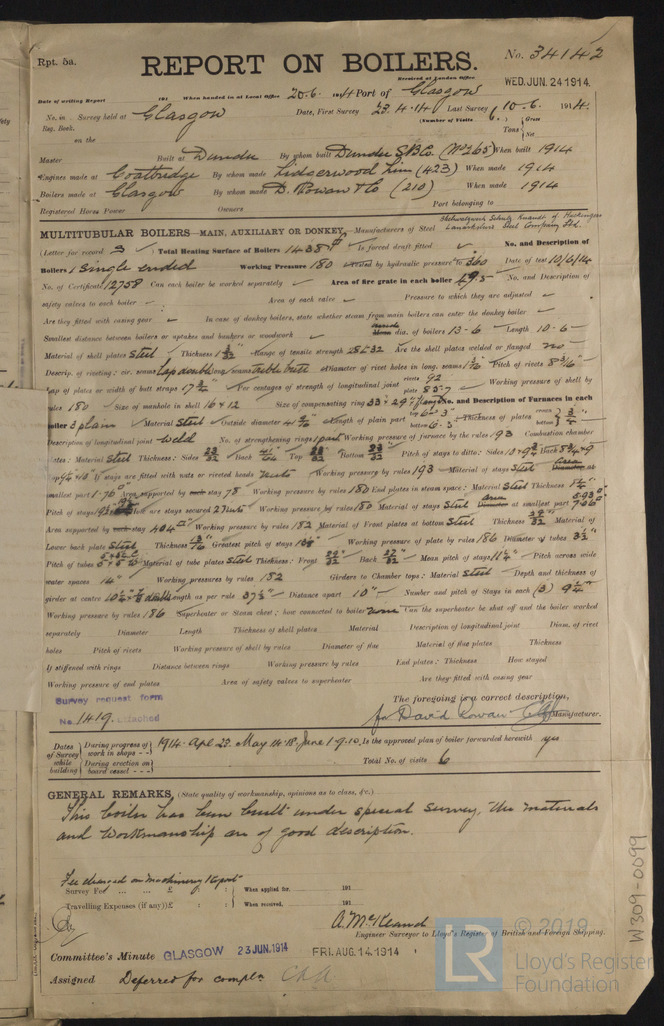 Rpt. 5a.
REPORT ON BOILERS.
No. 34142
Received at London Office
WED. JUN. 24 1914.
Date of writing Report 191 When handed in at Local Office 20.6. 1914 Port of Glasgow
No. in Survey held at Glasgow Date, First Survey 23.4.14 Last Survey 10.6. 1914.
Reg. Book.
(Number of Visits 6)
Gross
Tons
Net
on the
Master Built at Dundee By whom built Dundee S.B. Co. (No 265) When built 1914
Engines made at Coatbridge By whom made Lidgerwood Lim (423) When made 1914
Boilers made at Glasgow By whom made D. Rowan & Co (210) When made 1914
Registered Horse Power Owners Port belonging to
MULTITUBULAR BOILERS—MAIN, AUXILIARY OR DONKEY.—Manufacturers of Steel
Lanarkshire Steel Company Ltd.
(Letter for record S) Total Heating Surface of Boilers 1438 Is forced draft fitted No. and Description of
Boilers 1 Single ended Working Pressure 180 Tested by hydraulic pressure to 360 Date of test 10/6/14
No. of Certificate 12758 Can each boiler be worked separately Area of fire grate in each boiler 49.5 No. and Description of
safety valves to each boiler Area of each valve Pressure to which they are adjusted
Are they fitted with easing gear In case of donkey boilers, state whether steam from main boilers can enter the donkey boiler
Smallest distance between boilers or uptakes and bunkers or woodwork dia. of boilers 13-6 Length 10-6
Material of shell plates Steel Thickness 1 3/32 Range of tensile strength 28 & 32 Are the shell plates welded or flanged no
Descrip. of riveting: cir. seams Lap double long. seams treble butt Diameter of rivet holes in long. seams Pitch of rivets 8 3/16"
Lap of plates or width of butt straps 17 3/4" Per centages of strength of longitudinal joint rivets 92 plate 85.7 Working pressure of shell by
rules 180 Size of manhole in shell 16 x 12 Size of compensating ring No. and Description of Furnaces in each
boiler 3 plain Material Steel Outside diameter Length of plain part top 6-3" bottom 6-3 Thickness of plates crown bottom 3/4
Description of longitudinal joint weld No. of strengthening rings Working pressure of furnace by the rules 193 Combustion chamber
plates: Material Steel Thickness: Sides Back Top Bottom Pitch of stays to ditto: Sides Back
Top If stays are fitted with nuts or riveted heads nuts Working pressure by rules 193 Material of stays Steel at
smallest part 1.76 Area supported by each stay 78 Working pressure by rules 180 End plates in steam space: Material Steel Thickness
Pitch of stays How are stays secured 2 nuts Working pressure by rules 180 Material of stays Steel at smallest part
Area supported by each stay 404 Working pressure by rules 182 Material of Front plates at bottom Steel Thickness Material of
Lower back plate Steel Thickness Greatest pitch of stays Working pressure of plate by rules 186 Diameter of tubes 3 1/2"
Pitch of tubes Material of tube plates Steel Thickness: Front Back Mean pitch of stays Pitch across wide
water spaces 14" Working pressures by rules 182 Girders to Chamber tops: Material Steel Depth and thickness of
girder at centre Length as per rule 37 1/2" Distance apart 10" Number and pitch of Stays in each (3) 9 1/4"
Working pressure by rules 186 Superheater or Steam chest; how connected to boiler none Can the superheater be shut off and the boiler worked
separately Diameter Length Thickness of shell plates Material Description of longitudinal joint Diam. of rivet
holes Pitch of rivets Working pressure of shell by rules Diameter of flue Material of flue plates Thickness
If stiffened with rings Distance between rings Working pressure by rules End plates: Thickness How stayed
Working pressure of end plates Area of safety valves to superheater Are they fitted with easing gear
Survey request form
No. 1419. attached
The foregoing is a correct description,
for David Rowan & Co Manufacturer.
Dates of Survey while building During progress of work in shops - - 1914 Apl 23. May 14. 18. June 1. 9. 10. Is the approved plan of boiler forwarded herewith yes
During erection on board vessel - - - Total No. of visits 6
GENERAL REMARKS (State quality of workmanship, opinions as to class, &c.)
This boiler has been built under special survey, the materials
and workmanship are of good description.
Fee charged on Machinery Report
Survey Fee ... ... £ : : When applied for, 191
Travelling Expenses (if any) £ : : When received, 191
A. McKeand
Engineer Surveyor to Lloyd's Register of British and Foreign Shipping.
Committee's Minute GLASGOW 23 JUN. 1914 FRI. AUG. 14 1914
Assigned Deferred for compln
W309-0099
© 2019
LR
Lloyd's Register
Foundation